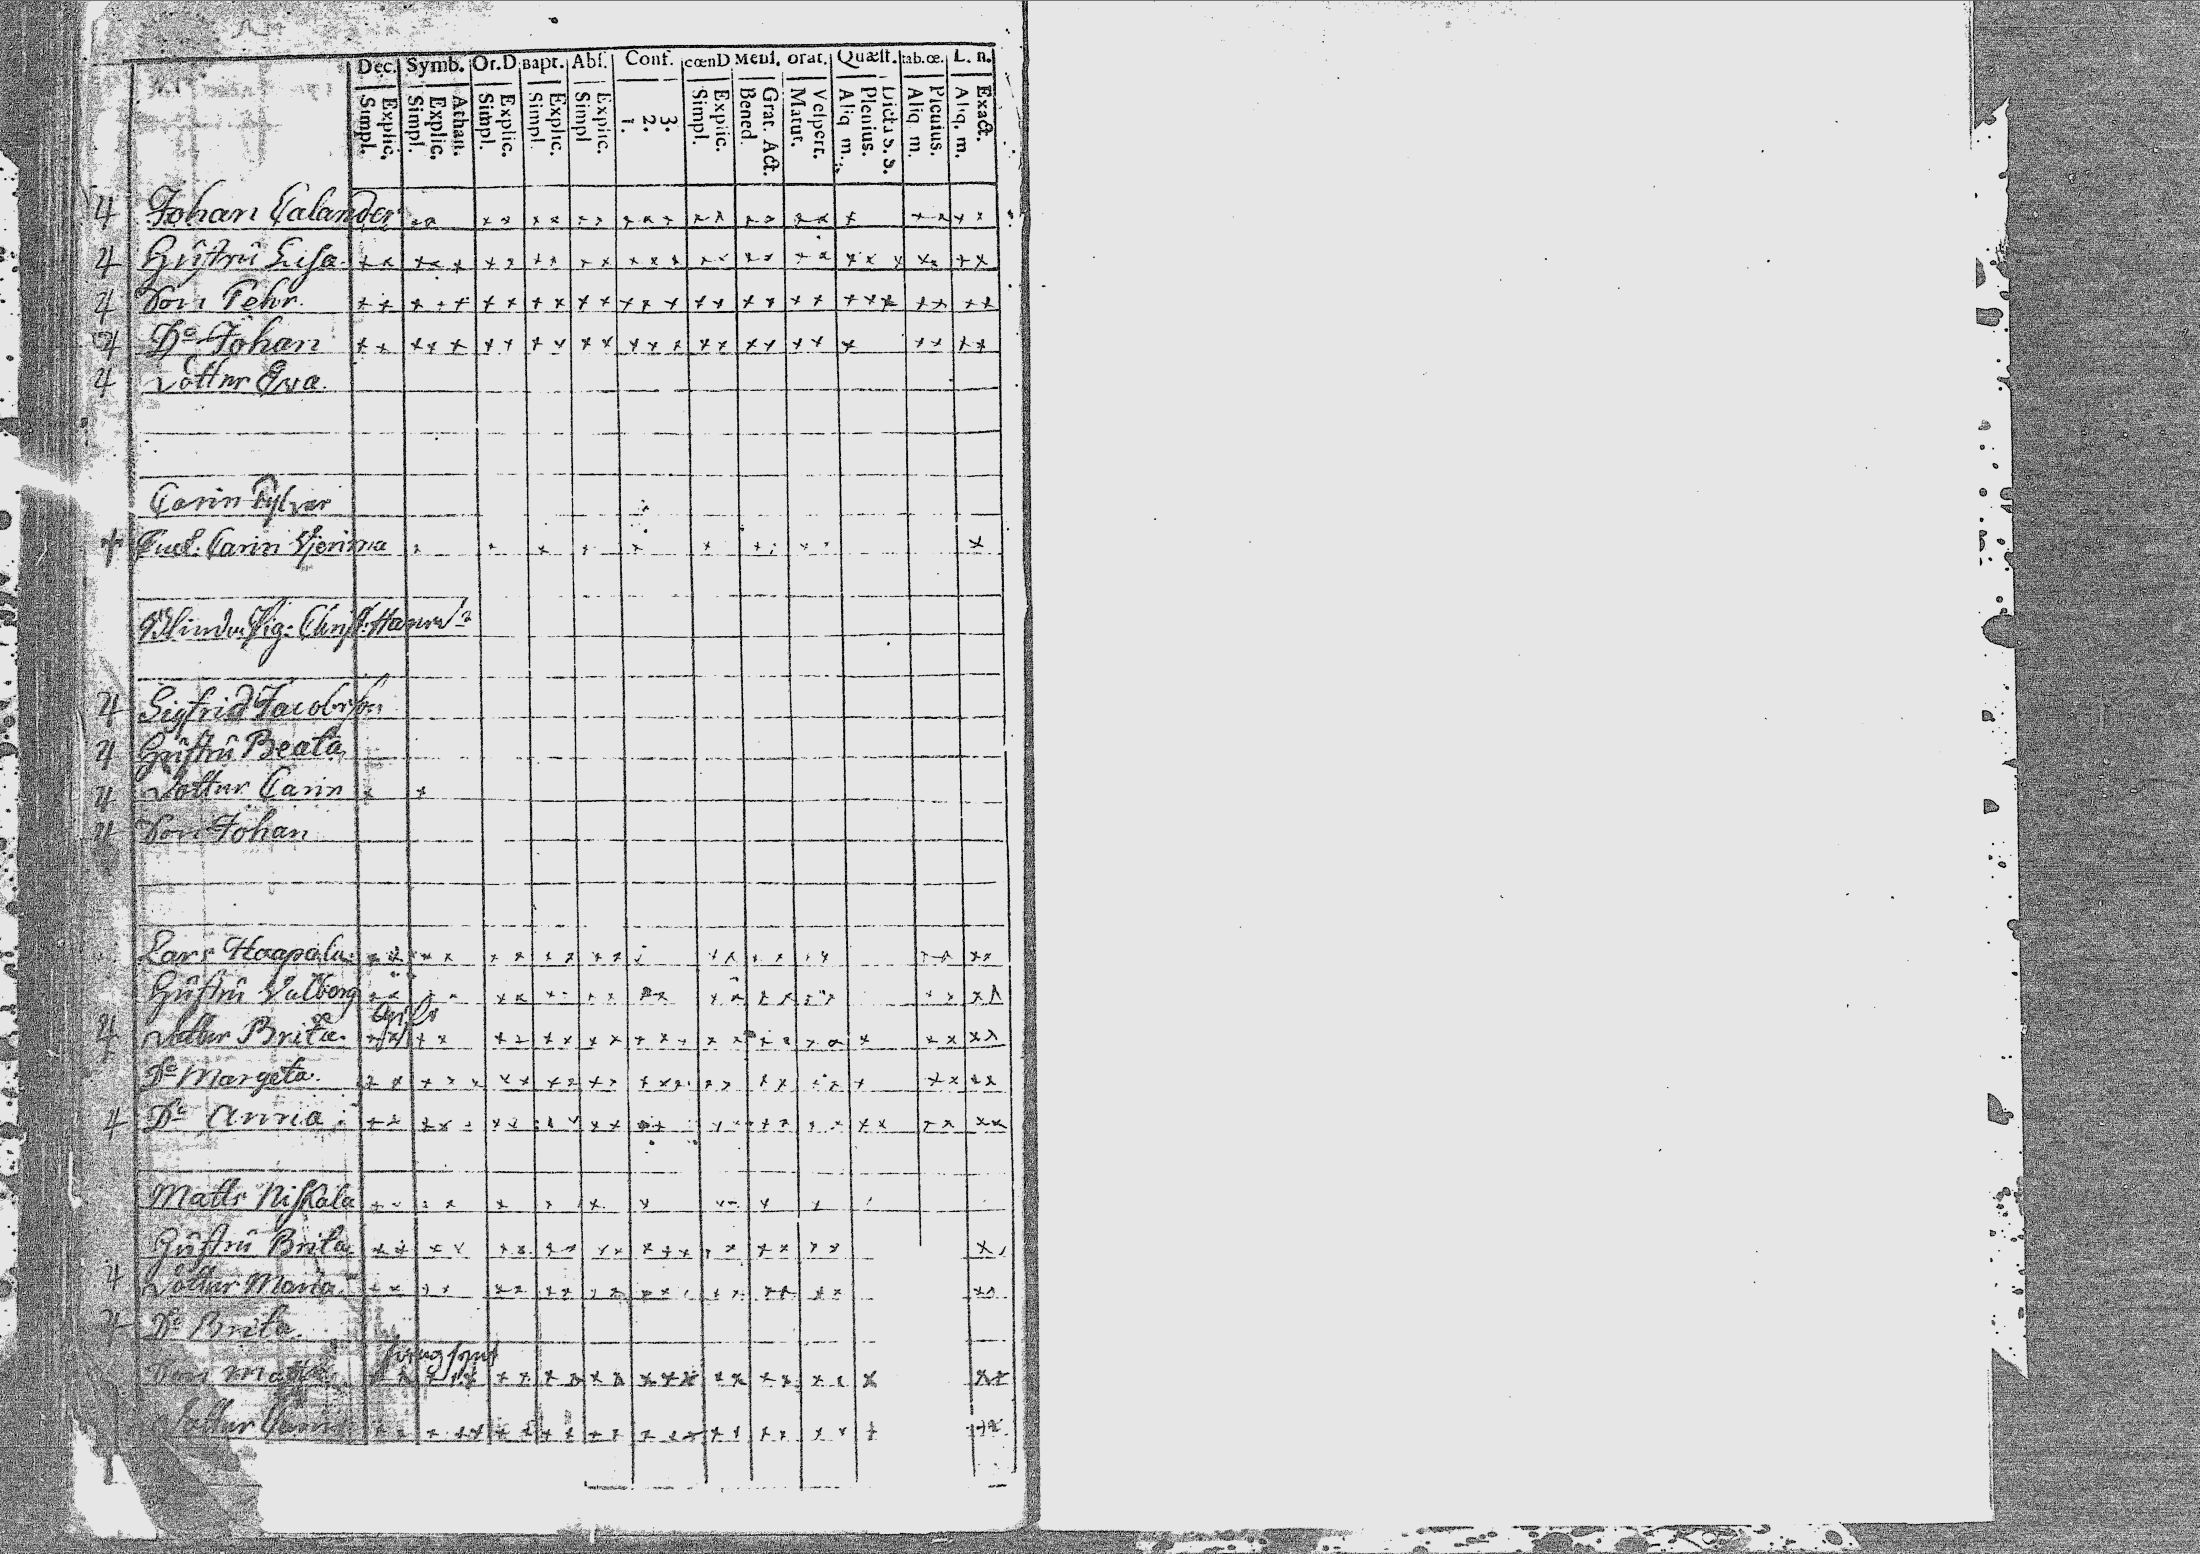 Dec. Symb. Or.D Bapt. Abs. Conf. cœnD Mens. orat. Quæst. tab.œ. L. n.
Simpl. Explic. Simpl. Explic. Athan. Simpl. Explic. Simpl Explic. Simpl Explic. 1. 2. 3. Simpl. Explic. Bened. Grat. Act. Matut. Vespert. Aliq m. Plenius. Dicta S. S. Aliq m. Plenius. Aliq. m. Exact.
4 Johan Calander
4 Hustru Lisa
4 Son Pehr.
4 Do Johan
4 Dotter Eva.
Carin
† Carin
Christ.
4 Sigfrid Jacobsson
4 Hustru Beata
4 Dotter Carin
4 Son Johan
Lars Haapala
Hustru Valborg
4 Dotter Brita.
Do Margeta.
4 Do Anna
Matts Niskala
Hustru Brita
4 Dotter Maria
4 Do Brita.
Son Matts
Dotter Carin